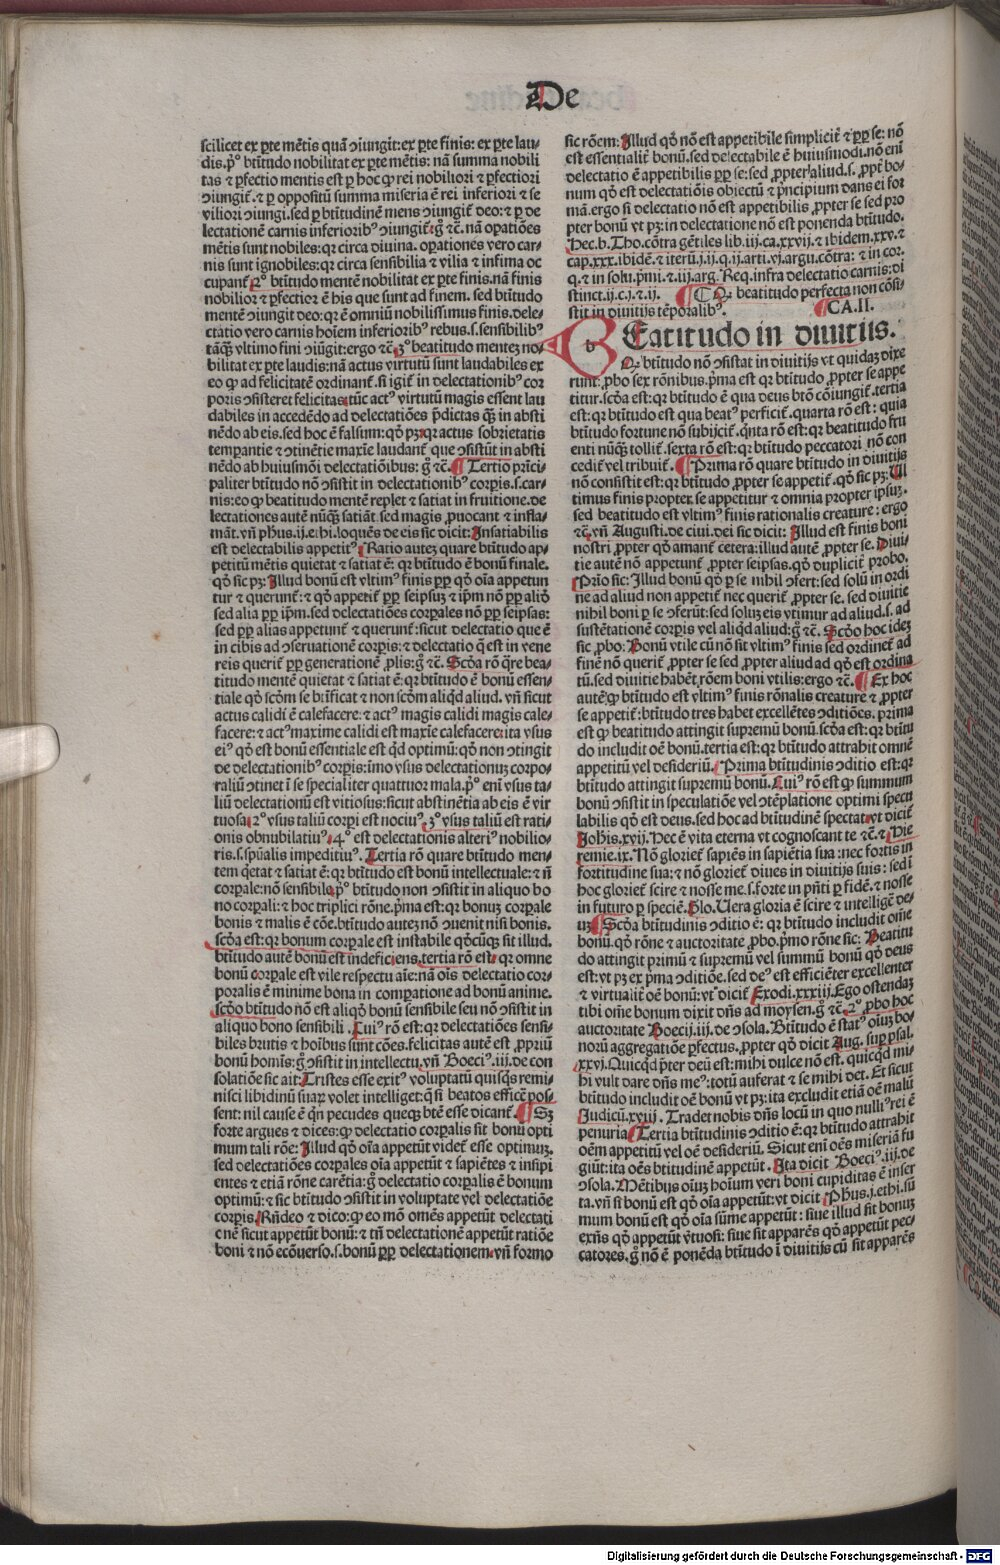 De
scilicet ex ꝑte mẽtis quã ɔiungit: ex ꝑte finis: ex ꝑte lau-
dis. pº btĩtudo nobilitat ex ꝑte mẽtis: nã summa nobili
tas ⁊ ꝑfectio mentis est ꝑ hoc ꝙ rei nobiliori ⁊ ꝑfectiori
ɔiungit᷑. ⁊ ꝑ oppositũ summa miseria ẽ rei inferiori ⁊ se
viliori ɔiungi. sed ꝑ btĩtudinẽ mens ɔiungit᷑ deo: ⁊ ꝑ de
lectationẽ carnis inferioribꝰ ɔiungit᷑: gͦ ⁊c̃. nã oꝑatiões
mẽtis sunt nobiles: qꝛ circa diuina. oꝑationes vero car-
nis sunt ignobiles: qꝛ circa sensibilia ⁊ vilia ⁊ infima oc
cupant᷑. 2º btĩtudo mentẽ nobilitat ex ꝑte finis. nã finis
nobilior ⁊ ꝑfectior ẽ his que sunt ad finem. sed btĩtudo
mentẽ ɔiungit deo: qꝛ ẽ omniũ nobilissimus finis. dele-
ctatio vero carnis hoĩem inferioribꝰ rebus. s. sensibilibꝰ
tãqꝫ vltimo fini ɔiũgit: ergo ⁊c̃. 3º beatitudo mentez no-
bilitat ex ꝑte laudis: nã actus virtutũ sunt laudabiles ex
eo ꝙ ad felicitatẽ ordinant᷑. si igit᷑ in delectationibꝰ cor
poris ɔsisteret felicitas: tũc actꝰ virtutũ magis essent lau
dabiles in accedẽdo ad delectatiões p̃dictas qꝫ in absti
nẽdo ab eis. sed hoc ẽ falsum: qð pꝫ: qꝛ actus sobrietatis
temꝑantie ⁊ ɔtinẽtie maxĩe laudant᷑ que ɔsistũt in absti
nẽdo ab huiusmõi delectatiõibus: gͦ ⁊c̃. ¶ Tertio prĩci-
paliter btĩtudo nõ ɔsistit in delectationibꝰ corꝑis. s. car-
nis: eo ꝙ beatitudo mentẽ replet ⁊ satiat in fruitione. de
lectationes autẽ nũqꝫ satiãt. sed magis ꝓuocant ⁊ infla-
mãt. vñ phꝰs. ij. ethi. loquẽs de eis sic dicit: Insatiabilis
est delectabilis appetitꝰ. Ratio autez quare btĩtudo ap-
petitũ mẽtis quietat ⁊ satiat ẽ: qꝛ btĩtudo ẽ bonũ finale.
qð sic pꝫ: Illud bonũ est vltimꝰ finis ꝓꝑ qð oĩa appetun
tur ⁊ querunt᷑: ⁊ qð appetit᷑ ꝓꝑ seipsuꝫ ⁊ ip̃m nõ ꝓꝑ aliqð
sed alia ꝓꝑ ip̃m. sed delectatiões corꝑales nõ ꝓꝑ seipsas:
sed ꝓꝑ alias appetunt᷑ ⁊ querunt᷑: sicut delectatio que ẽ
in cibis ad ɔseruationẽ corꝑis: ⁊ delectatio q̃ est in vene
reis querit᷑ ꝓꝑ generationẽ ꝓlis: gͦ ⁊c̃. Scõa rõ q̃re bea-
titudo mentẽ quietat ⁊ satiat ẽ: qꝛ btĩtudo ẽ bonũ essen-
tiale qð scõm se btĩficat ⁊ non scõm aliqð aliud. vñ sicut
actus calidi ẽ calefacere: ⁊ actꝰ magis calidi magis cale-
facere: ⁊ actꝰ maxime calidi est maxĩe calefacere: ita vsus
eiꝰ qð est bonũ essentiale est qð optimũ: qð non ɔtingit
de delectationibꝰ corꝑis: ĩmo vsus delectationuꝫ corpo-
raliũ ɔtinet ĩ se specialiter quattuor mala. pº enĩ vsus ta-
liũ delectationũ est vitiosus: sicut abstinẽtia ab eis ẽ vir
tuosa. 2º vsus taliũ corpi est nociuꝰ. 3º vsus taliũ est rati-
onis obnubilatiuꝰ. 4º est delectationis alteriꝰ nobilio-
ris. s. spũalis impeditiuꝰ. Tertia rõ quare btĩtudo men-
tem q̃etat ⁊ satiat ẽ: qꝛ btĩtudo est bonũ intellectuale: ⁊ ñ
corꝑale: nõ sensibile. pº btĩtudo non ɔsistit in aliquo bo
no corꝑali: ⁊ hoc triplici rõne. pꝛma est: qꝛ bonuꝫ corꝑale
bonis ⁊ malis ẽ cõe. btĩtudo autez nõ ɔuenit nisi bonis.
scõa est: qꝛ bonum corꝑale est instabile qõcũqꝫ sit illud.
btĩtudo autẽ bonũ est indeficiens. tertia rõ est: qꝛ omne
bonũ corꝑale est vile respectu aĩe: nã oĩs delectatio cor-
poralis ẽ minime bona in comꝑatione ad bonũ anime.
scõo btĩtudo nõ est aliqð bonũ sensibile seu nõ ɔsistit in
aliquo bono sensibili. Cuiꝰ rõ est: qꝛ delectatiões sensi-
biles brutis ⁊ hoĩbus sunt cões. felicitas autẽ est ꝓpriũ
bonũ homĩs: gͦ ɔsistit in intellectu. vñ Boeciꝰ. iij. de con
solatiõe sic ait: Tristes esse exitꝰ voluptatũ quisqꝫ remi-
nisci libidinũ suaꝝ volet intelliget: q̃ si beatos efficẽ pos-
sent: nil cause ẽ qĩn pecudes queqꝫ btẽ esse dicant᷑. ¶ Sꝫ
forte argues ⁊ dices: ꝙ delectatio corꝑalis sit bonũ opti
mum tali rõe: Illud qð oĩa appetũt videt᷑ esse optimuꝫ.
sed delectatiões corꝑales oĩa appetũt ⁊ sapiẽtes ⁊ insipi
entes ⁊ etiã rõne carẽtia: gͦ delectatio corꝑalis ẽ bonum
optimũ: ⁊ sic btĩtudo ɔsistit in voluptate vel delectatiõe
corꝑis. Rñdeo ⁊ dico: ꝙ eo mõ omẽs appetũt delectati
onẽ sicut appetũt bonũ: ⁊ tñ delectationẽ appetũt ratiõe
boni ⁊ nõ ecõuerso. s. bonũ ꝓꝑ delectationem. vñ formo
sic rõem: Illud qð nõ est appetibile simplicit᷑ ⁊ ꝓꝑ se: nõ
est essentialit᷑ bonũ. sed delectabile ẽ huiusmodi. nõ enĩ
delectatio ẽ appetibilis ꝓꝑ se: sed ꝓpter aliud. s. ꝓpt᷑ bo-
num qð est delectatiõis obiectũ ⁊ p̃ncipium dans ei for
mã. ergo si delectatio nõ est appetibilis ꝓpter se sed pro
pter bonũ vt pꝫ: in delectatione nõ est ponenda btĩtudo.
Hec. b. Tho. cõtra gẽtiles lib. iij. ca. xxvij. ⁊ ibidem. xxv. ⁊
cap. xxx. ibidẽ. ⁊ iterũ. j. ij. q. ij. arti. vj. argu. cõtra: ⁊ in cor.
q. ⁊ in solu. pꝛmi. ⁊. iij. arg. Req. infra delectatio carnis: di
stinct. ij. c. j. ⁊. ij. ¶ ꝙ beatitudo perfecta non cõsi-
stit in diuitijs tẽporalibꝰ. ¶ CA. II.
BEatitudo in diuitijs.
ꝙ btĩtudo nõ ɔsistat in diuitijs vt quidaꝫ dixe
runt: ꝓbo sex rõnibus. pꝛma est qꝛ btĩtudo ꝓpter se appe
titur. scõa est: qꝛ btĩtudo ẽ qua deus btõ cõiungit᷑. tertia
est: qꝛ btĩtudo est qua beatꝰ perficit᷑. quarta rõ est: quia
btĩtudo fortune nõ subijcit᷑. q̃nta rõ est: qꝛ beatitudo fru
enti nũqꝫ tollit᷑. sexta rõ est: qꝛ btĩtudo peccatori nõ con
cedit᷑ vel tribuit᷑. ¶ Prima rõ quare btĩtudo in diuitijs
nõ consistit est: qꝛ btĩtudo ꝓpter se appetit᷑. qð sic pꝫ: Ul
timus finis propter se appetitur ⁊ omnia propter ipsuꝫ.
sed beatitudo est vltimꝰ finis rationalis creature: ergo
⁊c̃. vñ Augusti. de ciui. dei sic dicit: Illud est finis boni
nostri ꝓpter qð amant᷑ cetera: illud autẽ ꝓpter se. Diui-
tie autẽ nõ appetunt᷑ ꝓpter seipsas. qð duplicit᷑ probo.
Prĩo sic: Illud bonũ qð ꝑ se nihil ɔfert: sed solũ in ordi
ne ad aliud non appetit᷑ nec querit᷑ ꝓpter se. sed diuitie
nihil boni ꝑ se ɔferũt: sed soluꝫ eis vtimur ad aliud. s. ad
sustẽtationẽ corꝑis vel aliqð aliud: gͦ ⁊c̃. Scõo hoc idez
sic ꝓbo: Bonũ vtile cũ nõ sit vltimꝰ finis sed ordinet᷑ ad
finẽ nõ querit᷑ ꝓpter se sed ꝓpter aliud ad qð est ordina
tũ. sed diuitie habẽt rõem boni vtilis: ergo ⁊c̃. ¶ Ex hoc
autẽ ꝙ btĩtudo est vltimꝰ finis rõnalis creature ⁊ ꝓpter
se appetit᷑: btĩtudo tres habet excellẽtes ɔditiões. prima
est ꝙ beatitudo attingit supremũ bonũ. scõa est: qꝛ btĩtu
do includit oẽ bonũ. tertia est: qꝛ btĩtudo attrahit omnẽ
appetitũ vel desideriũ. Prima btĩtudinis ɔditio est: qꝛ
btĩtudo attingit supremũ bonũ. Cuiꝰ rõ est ꝙ summum
bonũ ɔsistit in speculatiõe vel ɔtẽplatione optimi specu
labilis qð est deus. sed hoc ad btĩtudinẽ spectat. vt dicit᷑
Johis. xvij. Hec ẽ vita eterna vt cognoscant te ⁊c̃. ⁊ Hie
remie. ix. Nõ gloriet᷑ sapiẽs in sapiẽtia sua: nec fortis in
fortitudine sua: ⁊ nõ gloriet᷑ diues in diuitijs suis: sed ĩ
hoc gloriet᷑ scire ⁊ nosse me. s. forte in p̃nti ꝑ fidẽ. ⁊ nosse
in futuro ꝑ speciẽ. Glo. Uera gloria ẽ scire ⁊ intelligẽ de-
uꝫ. ¶ Scõa btĩtudinis ɔditio ẽ: qꝛ btĩtudo includit oĩe
bonũ. qð rõne ⁊ auctoritate ꝓbo. pꝛmo rõne sic: Beatitu
do attingit primũ ⁊ supremũ vel summũ bonũ qð deus
est: vt pꝫ ex pꝛma ɔditiõe. sed deꝰ est efficiẽter excellenter
⁊ virtualit᷑ oẽ bonũ: vt dicit᷑ Exodi. xxxiij. Ego ostendaꝫ
tibi oĩe bonum dixit dñs ad moysen. gͦ ⁊c̃. 2º ꝓbo hoc
auctoritate Boecij. iij. de ɔsola. Btĩtudo ẽ statꝰ oĩuꝫ bo-
norũ aggregatiõe ꝑfectus. ꝓpter qð dicit Aug. suꝑ psal.
xxvj. Quicqð p̃ter deũ est: mihi dulce nõ est. quicqð mi-
hi vult dare dñs meꝰ: totũ auferat ⁊ se mihi det. Et sicut
btĩtudo includit oẽ bonũ vt pꝫ: ita excludit etiã oẽ malũ
Judicũ. xviij. Tradet nobis dñs locũ in quo nulliꝰ rei ẽ
penuria. ¶ Tertia btĩtudinis ɔditio ẽ: qꝛ btĩtudo attrahit
oẽm appetitũ vel oẽ desideriũ. Sicut enĩ oẽs miseriã fu
giũt: ita oẽs btĩtudinẽ appetũt. Ita dicit Boeciꝰ. iij. de
ɔsola. Mẽtibus oĩuꝫ hoĩum veri boni cupiditas ẽ inser
ta. vñ si bonũ est qð oĩa appetũt: vt dicit Phꝰs. j. ethi. sũ
mum bonũ est qð oĩa sũme appetũt: siue illud sit bonuꝫ
exñs qð appetũt v̾tuosi: siue sit apparẽs qð appetũt pec-
catores. gͦ nõ ẽ ponẽda btĩtudo ĩ diuitijs cũ sit apparẽs
Digitalisierung gefördert durch die Deutsche Forschungsgemeinschaft - DFG